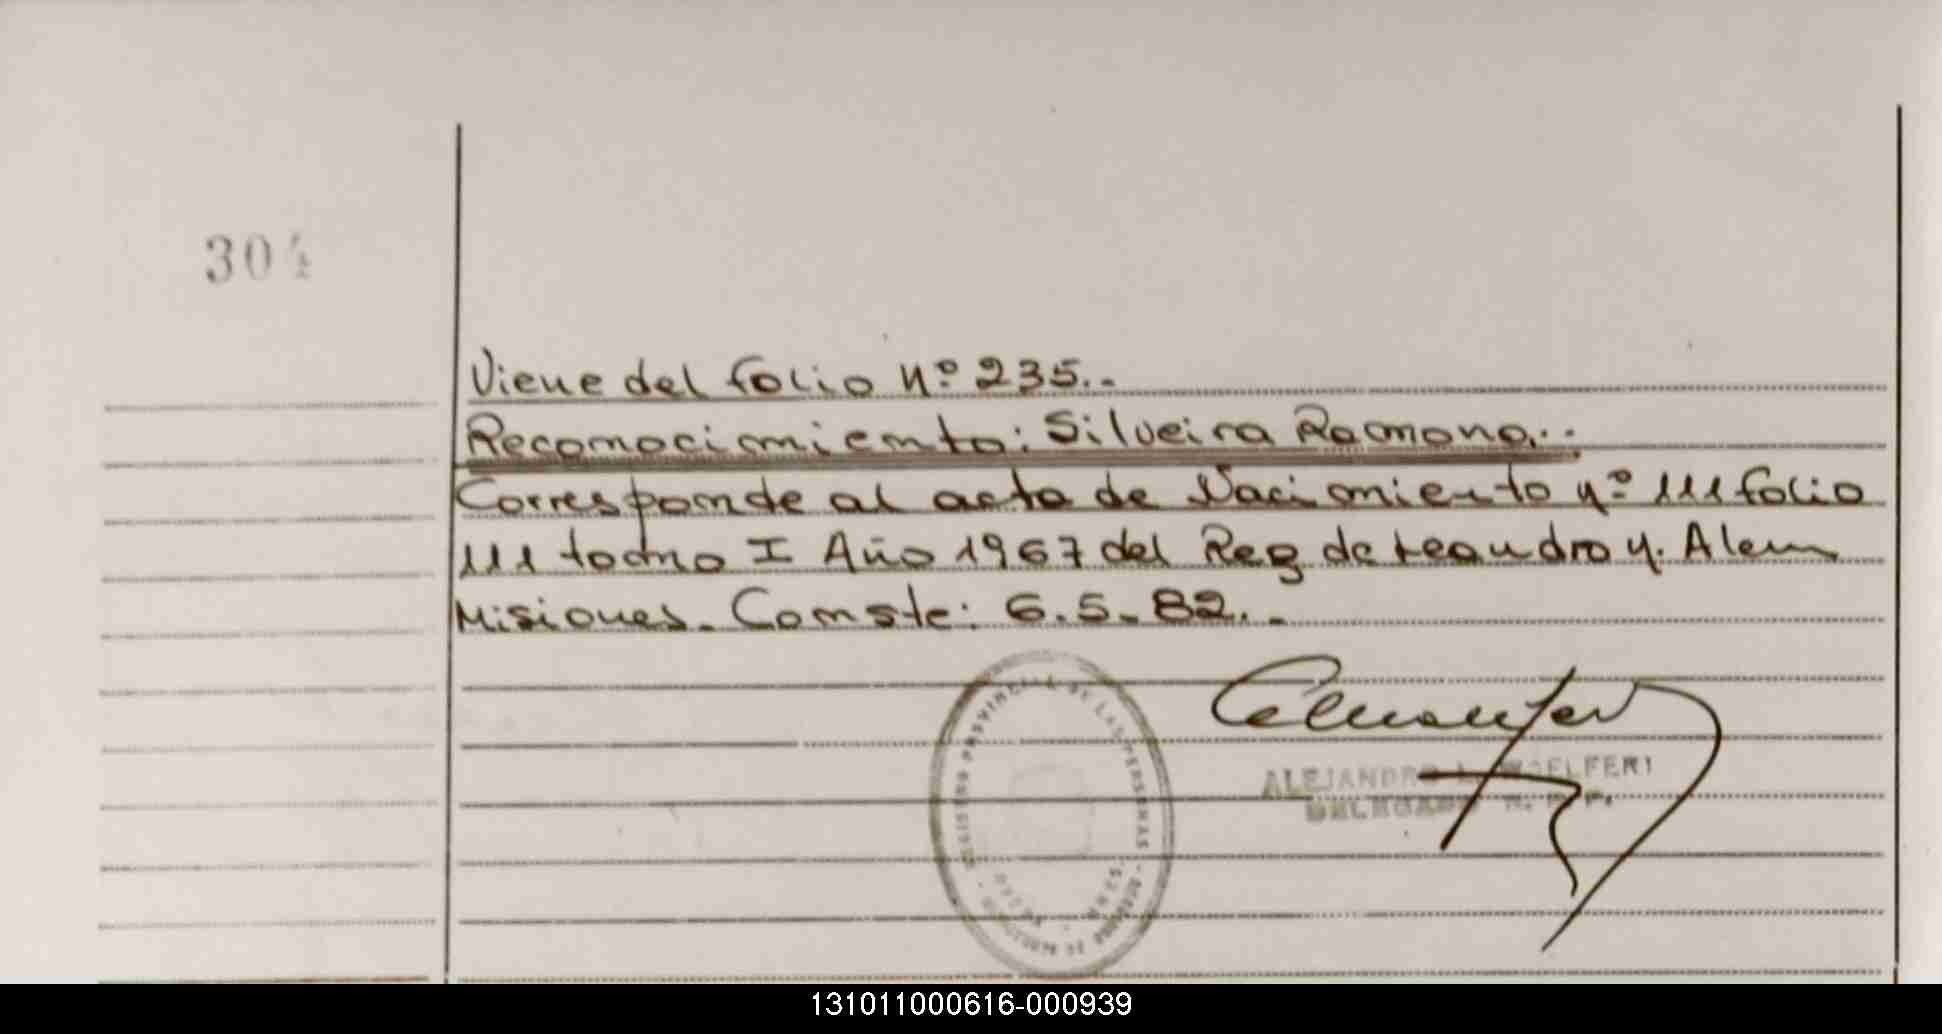 304
Viene del folio Nº 235.-
Reconocimiento: Silveira Ramona.-
Corresponde al acta de Nacimiento Nº 111 folio
111 tomo I Año 1967 del Reg de Leandro N. Alem
Misiones. Conste: 6.5.82.-
REGISTRO PROVINCIAL DE LAS PERSONAS
ALEJANDRO L. WOELFERT
DELEGADO R. P. P.
131011000616-000939